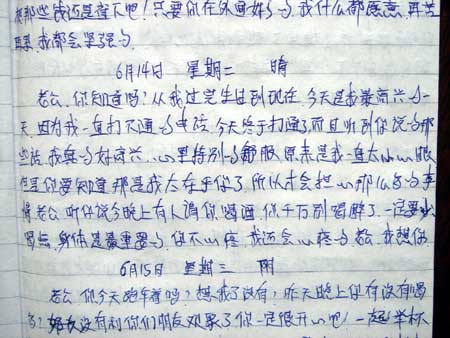 那些我还是信不吧！只要你在外面好与，我什么都愿意，再苦
再累，我都会坚强与
6月14日 星期二 晴
老公，你知道吗？从我过完生日到现在，今天是我最高兴与一
天，因为我一直打不通与电话，今天终于打通了，而且听到你说与那
些话，我真与好高兴，心里特别与舒服，原来是我一直太小心眼
但是你要知道，那是我太在乎你了，所以才会担心那么多与事
情，老公，听你说今晚上有人请你喝酒，你千万别喝醉了，一定要少
喝点，身体是最重要与，你不心疼，我还会心疼与，老公，我想你
6月15日 星期三 阴
老公，你今天跑车着吗？想我了没有？昨天晚上你有没有喝
多？没有利你们朋友观果了你一定很开心吧！一起举杯